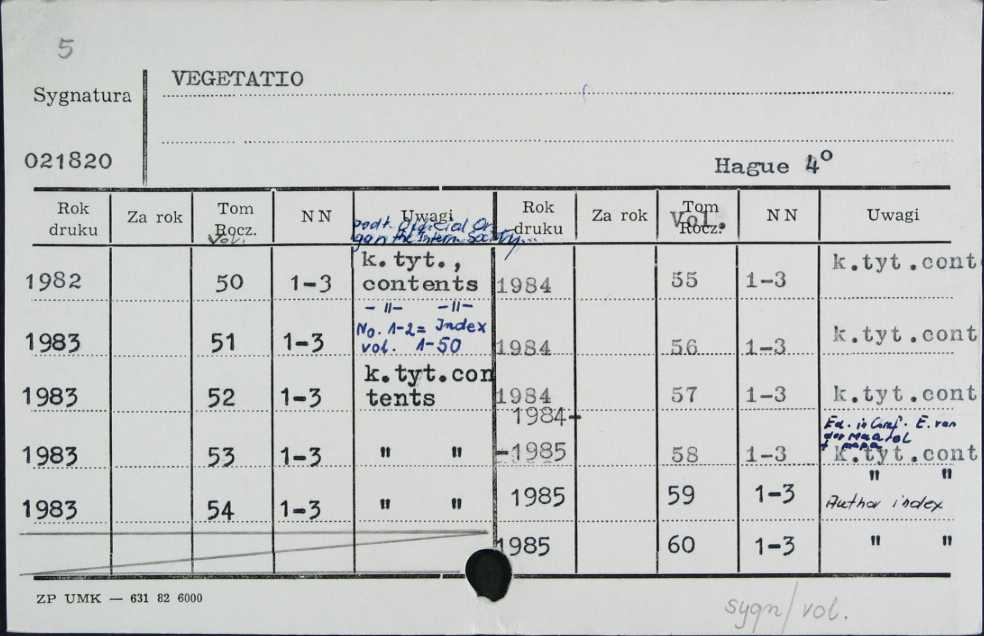 5
Sygnatura VEGETATIO
021820 Hague 4º
Rok druku Za rok Tom Rocz. Vol. NN Uwagi Rok druku Za rok Tom Rocz. Vol. NN Uwagi
podt. Official Organ the Intern. Society...
1982 50 1-3 k.tyt., contents
1983 51 1-3 -"- -"- No. 1-2= Index vol. 1-50
1983 52 1-3 k.tyt.contents
1983 53 1-3 " "
1983 54 1-3 " "
1984 55 1-3 k.tyt.cont
1984 56 1-3 k.tyt.cont
1984 57 1-3 k.tyt.cont
1984-
-1985 58 1-3 Ed. in E. van der k.tyt.cont
1985 59 1-3 " " Author index
1985 60 1-3 " "
ZP UMK — 631 82 6000
sygn/vol.